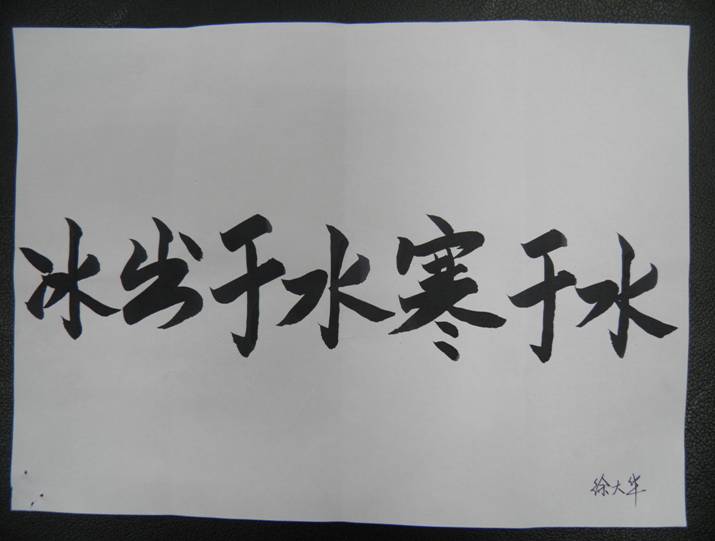 冰出于水寒于水
徐大华